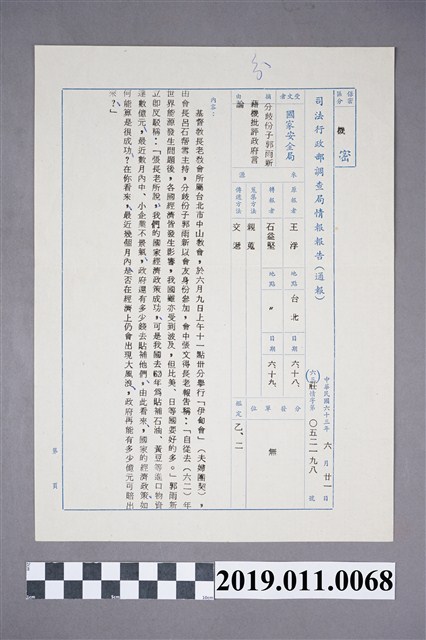 保密區分
機密
司法行政部調查局情報報告（通報）
中華民國六十三年 六 月 廿一 日
(六三)莊情字第 〇五二一九八 號
受文者
國家安全局
摘由
分歧份子郭雨新藉機批評政府言論
來源
原報者 王淳 地點 台北 日期 六十八、
轉報者 石益堅 地點 〃 日期 六十九、
蒐集方法 親蒐
傳遞方法 文遞
分發單位 無
鑑定 乙、二
內容：
基督教長老教會所屬台北市中山教會，於六月九日上午十一點卅分舉行「伊甸會」（夫婦團契），
由會長呂石帮零主持，分歧份子郭雨新以會友身份參加，會中張文得長老報告稱：「自從去（六二）年
世界能源發生問題後，各國經濟皆發生影響，我國雖亦受到波及，但比美、日等國要好的多。」郭雨新
立即反駁稱：「張長老所說，我們的國家經濟政策成功，可是我國去63年爲貼補石油、黃豆等進口物資
達數億元，最近數月內中、小企業不景氣，政府還有多少錢去貼補他們，由此看來，國家的經濟政策，如
何能算是很成功？在你看來，最近幾個月內是否在經濟上仍會出現大風浪，政府再能有多少億元可賠出
來？」
第 頁
5cm
10cm
2019.011.0068